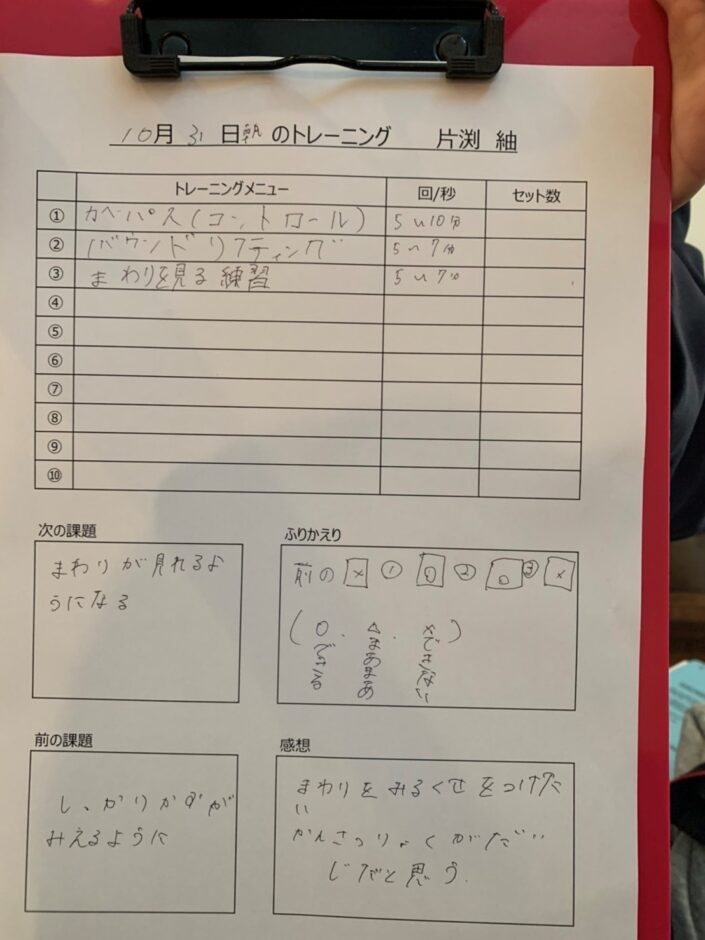 10月 31 日朝 のトレーニング 片渕 紬
トレーニングメニュー 回/秒 セット数
① カベパス(コントロール) 5〜10分
② 1バウンドリフティング 5〜7分
③ まわりを見る練習 5〜7分
④
⑤
⑥
⑦
⑧
⑨
⑩
次の課題
まわりが見れるよ
うになる
ふりかえり
前の × ① 〇 ② 〇 ③ ×
(〇できる.△まあまあ.×できない)
前の課題
しっかりかずが
みえるように
感想
まわりをみるくせをつけた
い
かんさつりょくがだい
じだと思う.